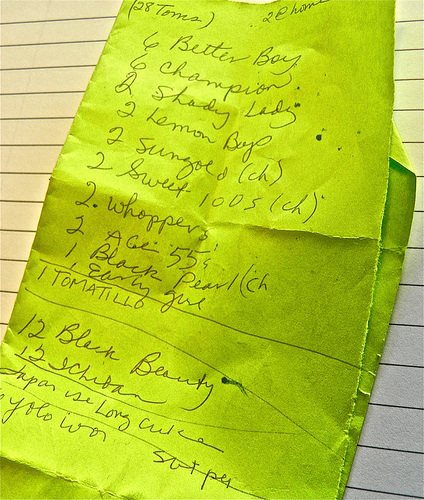 (28 Toms) 28 home
6 Better Boy
6 Champion
2 Shady Lady
2 Lemon Boy
2 Sungold (ch)
2 Sweet 100s (ch)
2. Whopper
2 ACE 55's
1 Black Pearl (ch
1 Early girl
1 TOMATILLO
12 Black Beauty
12 Ichiban
Japanise Long cuke
yolo won